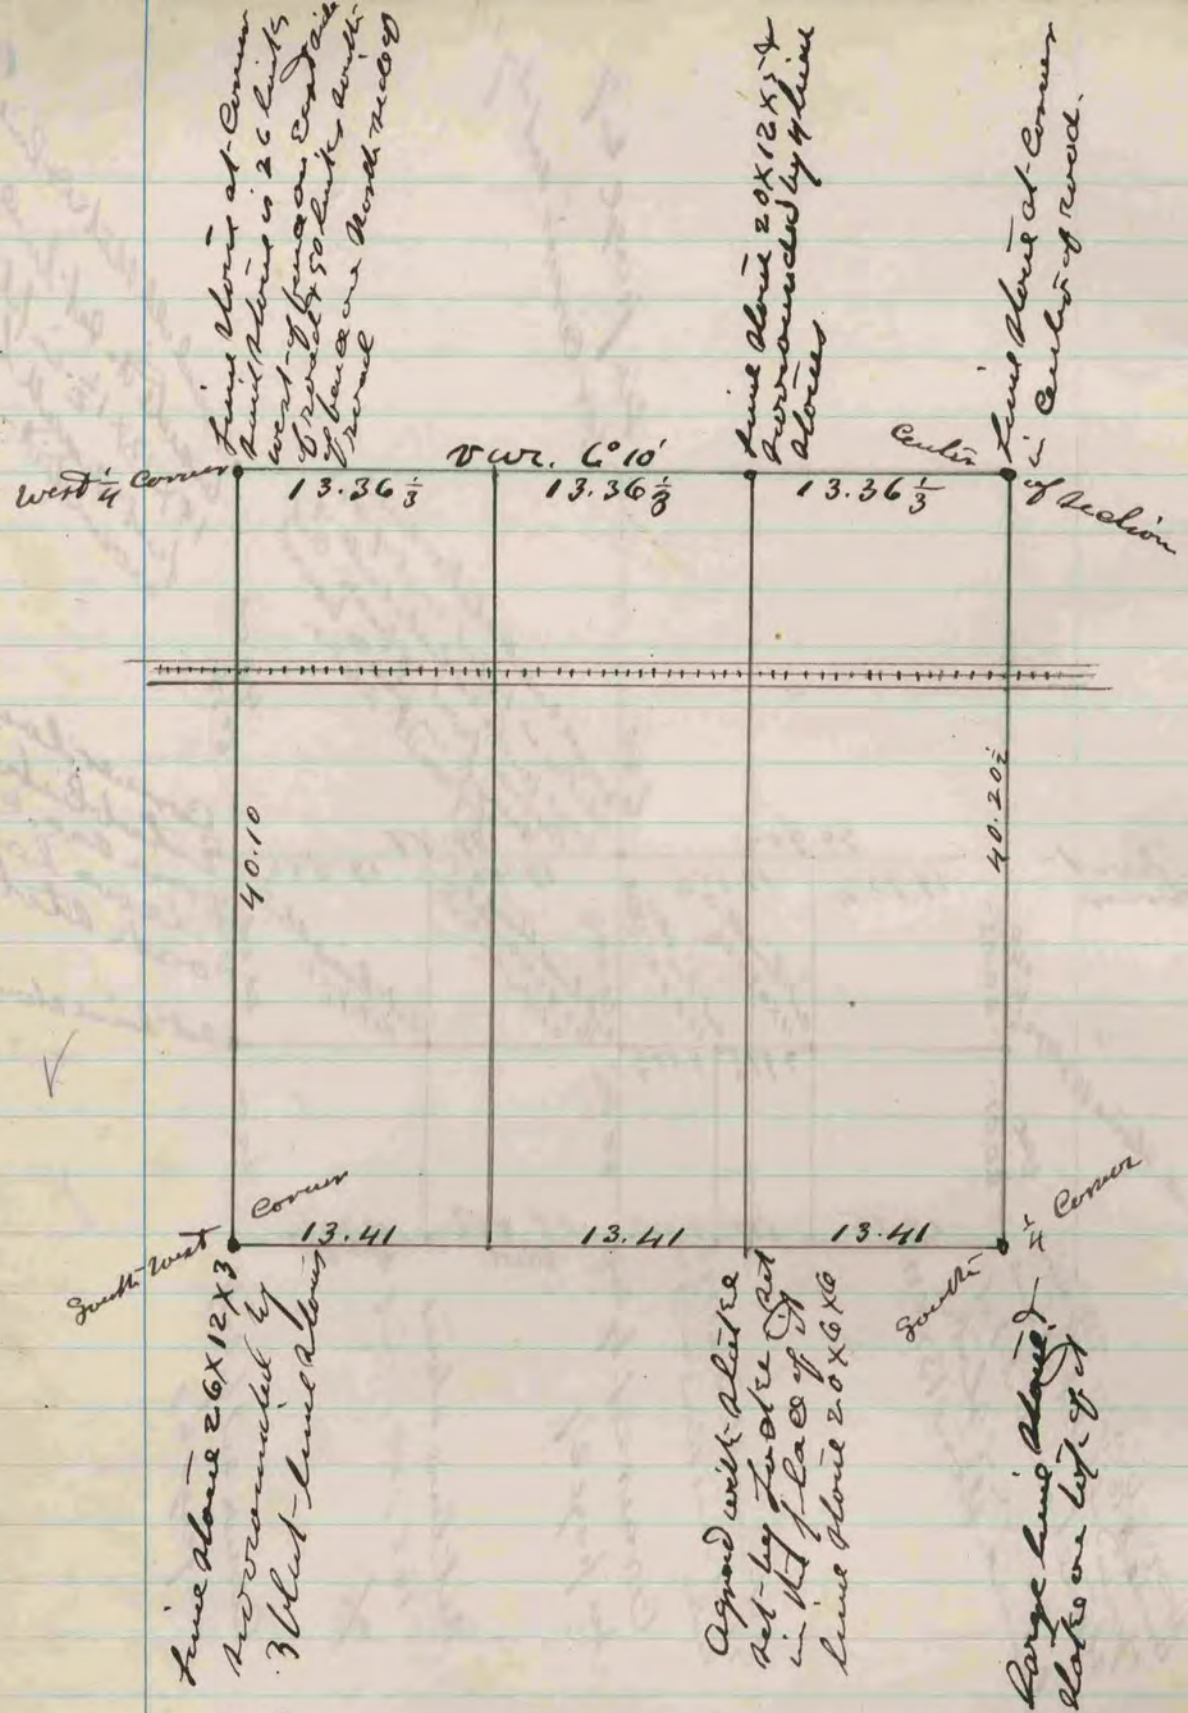 Lime stone at Corner
said stone is 26 links
west of fence on East side
of road & 50 links south
of fence on North side of
road
Lime stone 20X12X5 &
surrounded by 4 lime
stones
Lime stone at Corner
in Center of road.
West 1/4 Corner
var. 6° 10'
Center
of Section
13.36 1/3
13.36 1/3
13.36 1/3
40.10
40.20 1/2
South West
Corner
13.41
13.41
13.41
South
1/4 Corner
Lime stone 26X12X3
surrounded by
3 flat lime stones
Agreed with stake
set by
set
in the place of it
lime stone 20X6X6
Large lime stone &
stake on top of it